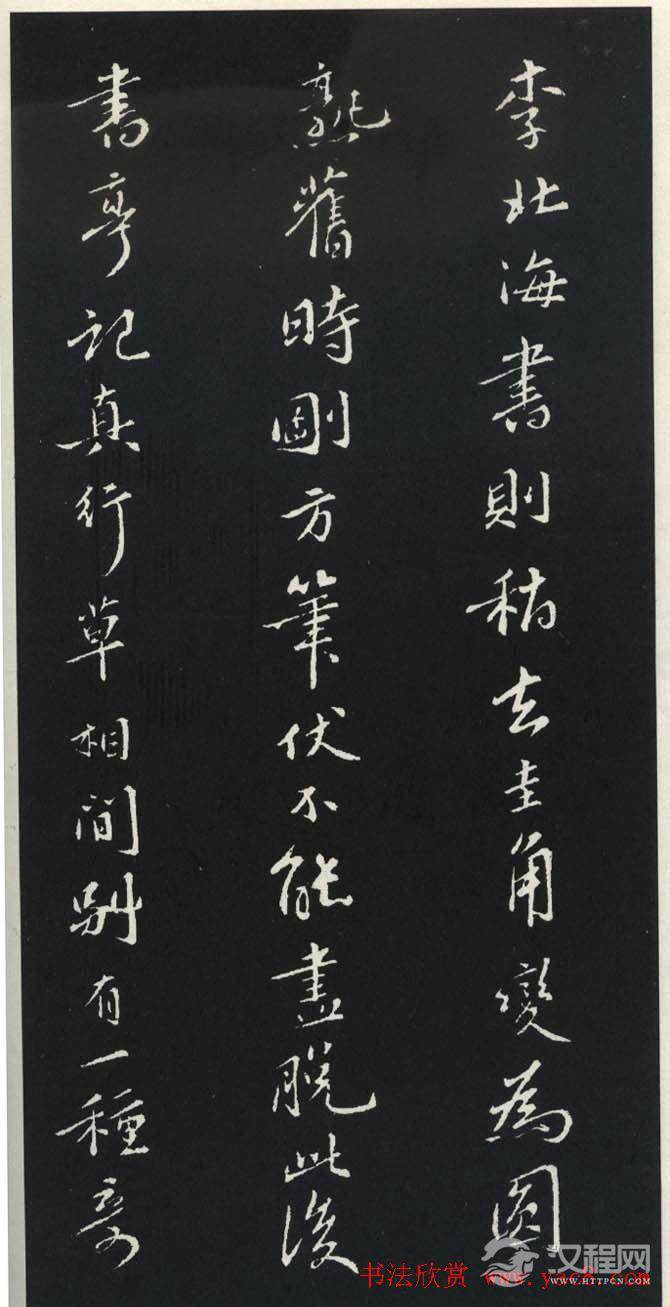 李北海書則稍去圭角變為圓
熟舊時剛方筆伏不能盡脫此後
書亭記真行草相間別有一種奇
汉程网
WWW.HTTPCN.COM
书法欣赏